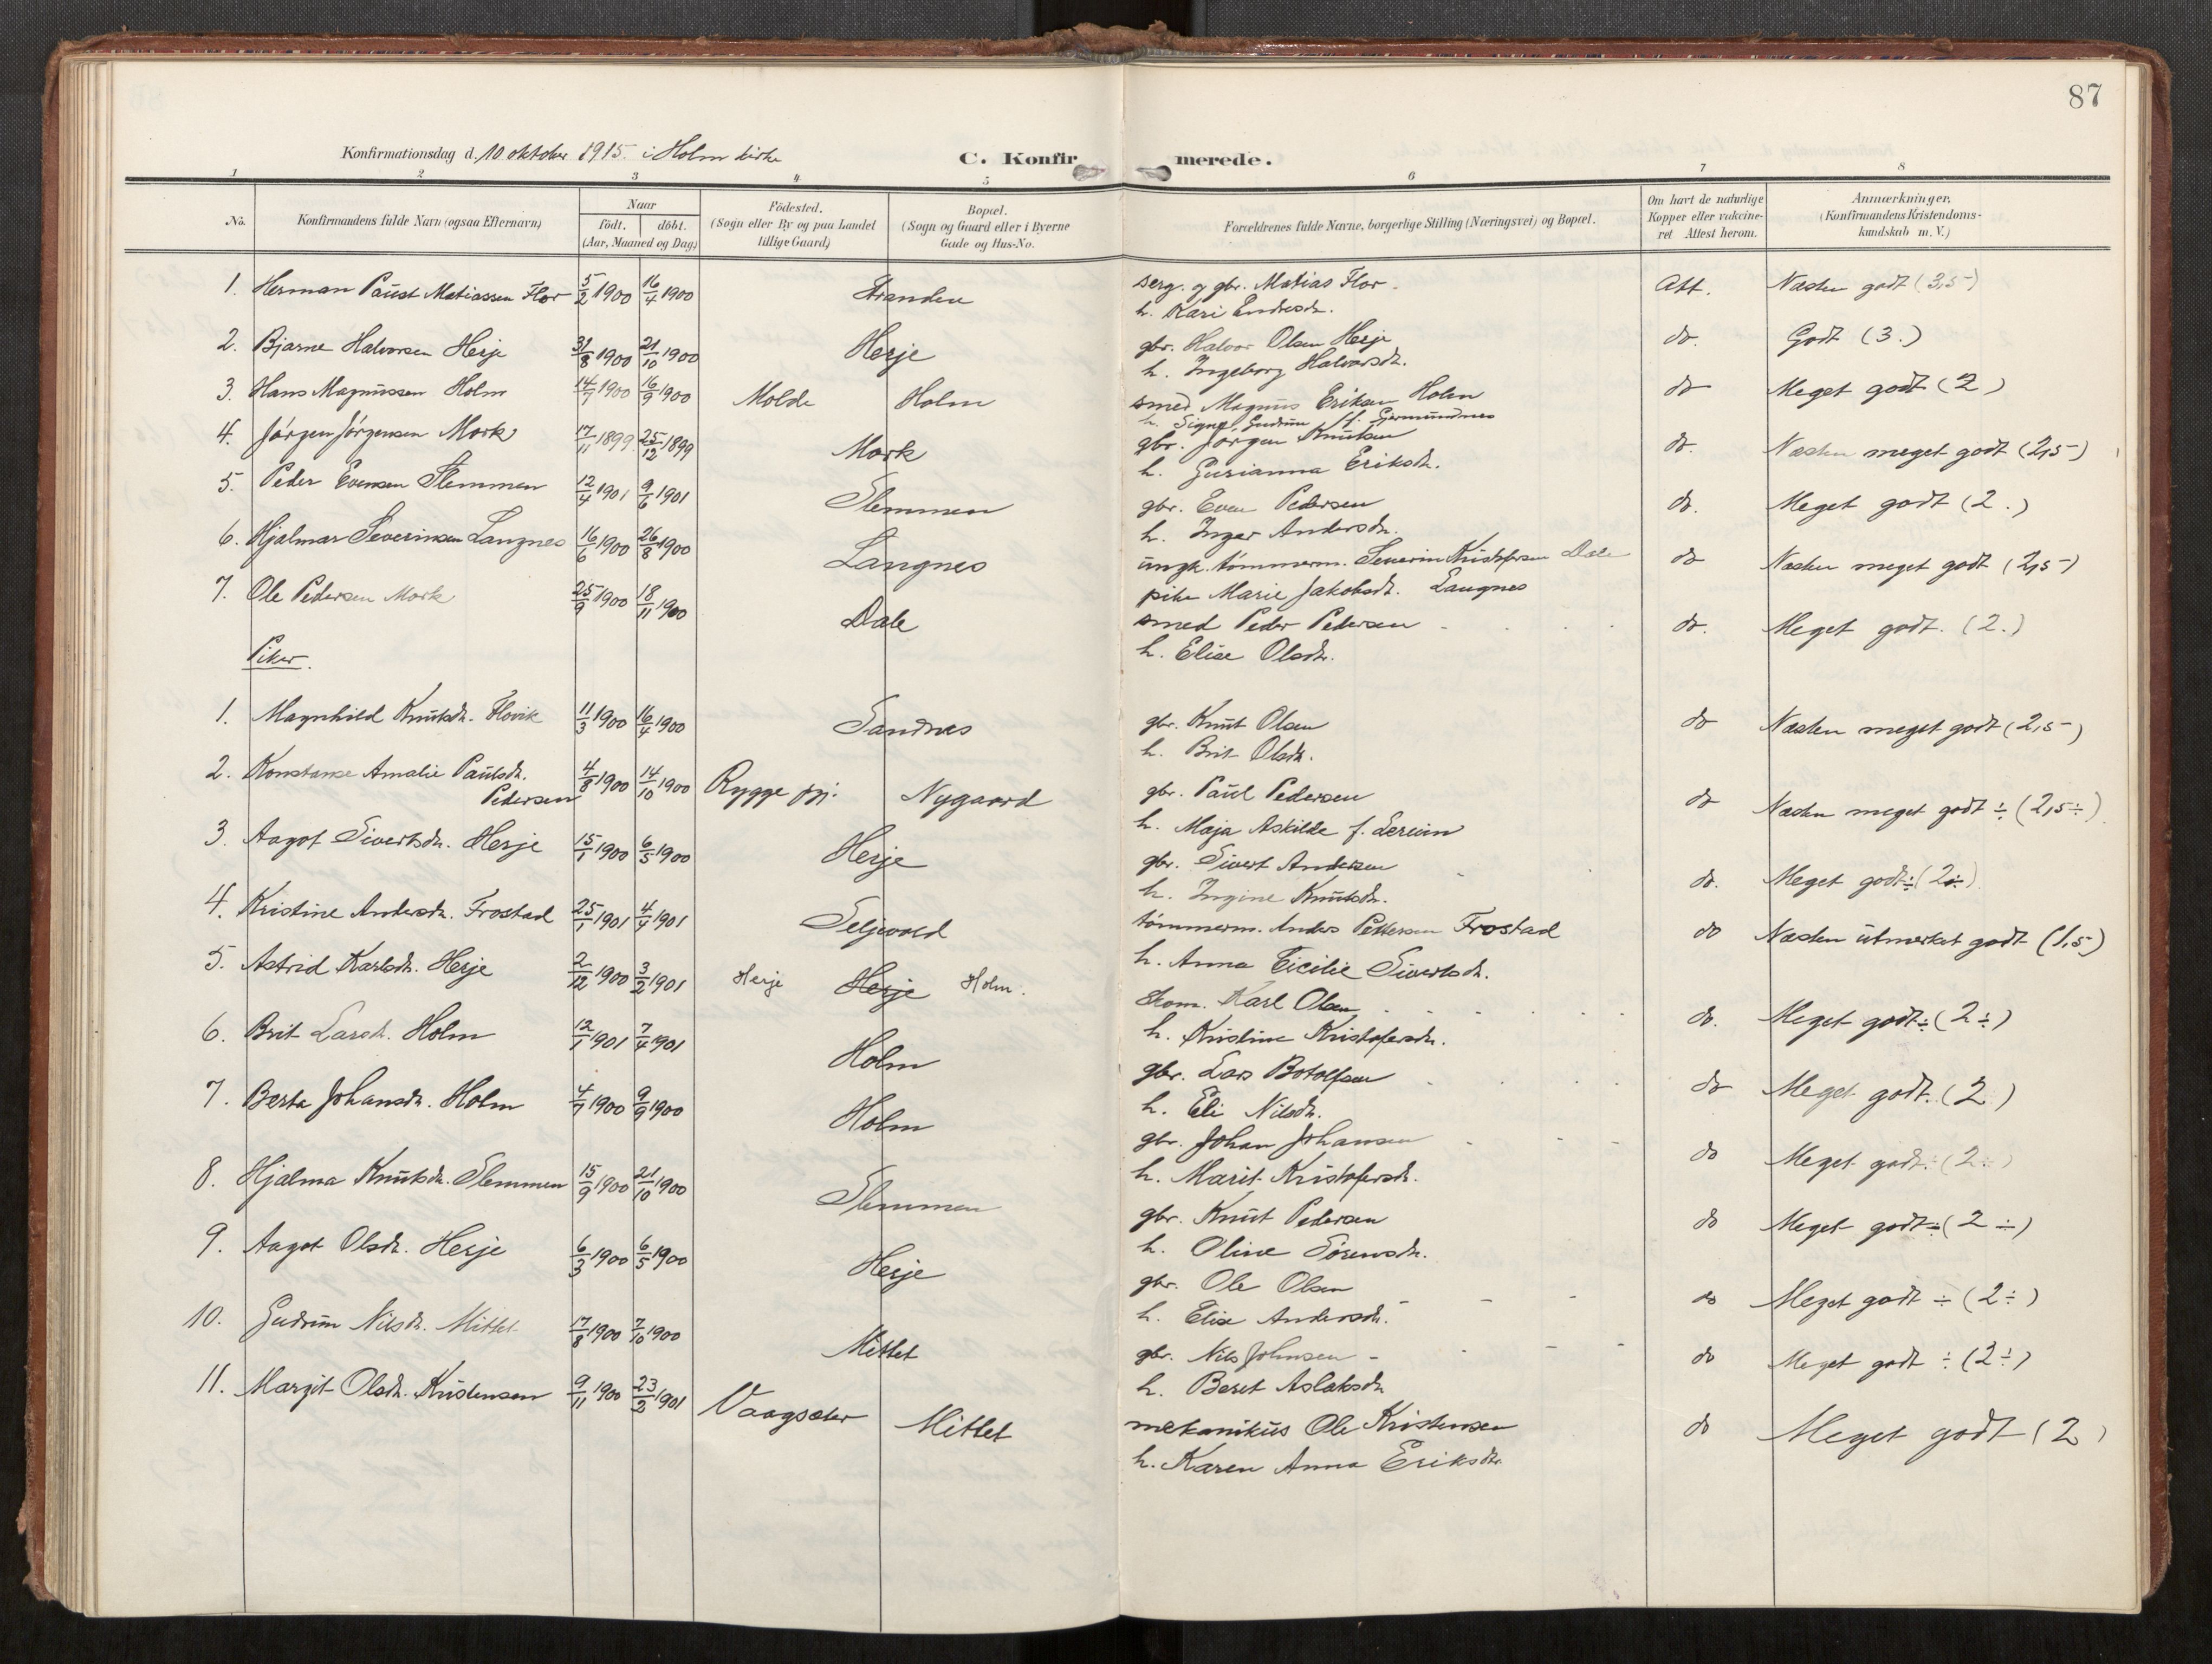 87
Konfirmationsdag d. 10 oktober 1915. i Holm kirke
C. Konfirmerede.
1 2 3 4 5 6 7 8
No.
Konfirmandens fulde Navn (ogsaa Efternavn)
Naar
født. døbt.
(Aar, Maaned og Dag)
Fødested.
(Sogn eller By og paa Landet
tillige Gaard)
Bopæl.
(Sogn og Gaard eller i Byerne
Gade og Hus-No.
Forældrenes fulde Navne, borgerlige Stilling (Næringsvei) og Bopæl.
Om havt de naturlige
Kopper eller vakcine-
ret Attest herom.
Anmærkninger,
(Konfirmandens Kristendoms-
kundskab m. V.)
1. Herman Paust Matiassen Flor 5/2 1900 16/4 1900 Stranden serg. og gbr. Matias Flor Att. Næsten godt (3,5-)
h. Kari Endresdr.
2. Bjarne Halvorsen Herje 31/8 1900 21/10 1900 Herje gbr. Halvor Olsen Herje do. Godt (3.)
h. Ingeborg Halvorsdr.
3. Hans Magnussen Holm 14/7 1900 16/9 1900 Molde Holm smed Magnus Eriksen Holm do Meget godt (2)
h. Signe Gudrun f. Gjermundnes
4. Jørgen Jørgensen Mork 17/11 1899 25/12 1899 Mork gbr. Jørgen Knutsen do. Næsten meget godt (2,5-)
h. Gurianna Eriksdr.
5. Peder Evensen Slemmen 12/4 1901 9/6 1901 Slemmen gbr. Even Pedersen do. Meget godt (2.)
h. Inger Andersdr.
6. Hjalmar Severinsen Langnes 16/6 1900 26/8 1900 Langnes ungk. tømmerm. Severin Kristofersen Dale do Næsten meget godt (2,5-)
pike Marie Jakobsdr. Langnes
7. Ole Pedersen Mork 25/9 1900 18/11 1900 Dale smed Peder Pedersen do. Meget godt. (2.)
h. Elise Olsdr.
Piker.
1. Magnhild Knutsdr. Hovik 11/3 1900 16/4 1900 Sandnes gbr. Knut Olsen do Næsten meget godt (2,5-)
h. Brit Olsdr.
2. Konstanse Amalie Paulsdr. 4/8 1900 14/10 1900 Rygge pgj. Nygaard gbr. Paul Pedersen do Næsten meget godt ÷ (2,5÷)
Pedersen h. Maja Askilde f. Lereim
3. Aagot Sivertsdr. Herje 15/1 1900 6/5 1900 Herje gbr. Sivert Andersen do. Meget godt÷ (2÷)
h. Ingine Knutsdr.
4. Kristine Andersdr. Frostad 25/1 1901 4/4 1901 Seljevold tømmerm. Anders Pettersen Frostad do Næsten utmerket godt (1,5)
h. Anna Cicilie Sivertsdr.
5. Astrid Karlsdr. Herje 2/12 1900 3/2 1901 Herje Herje Holm. skom. Karl Olsen do. Meget godt÷ (2÷)
h. Kristine Kristofersdr.
6. Brit Larsdr. Holm 12/1 1901 7/4 1901 Holm gbr. Lars Botolfsen do Meget godt. (2)
h. Eli Nilsdr.
7. Berta Johansdr. Holm 4/7 1900 9/9 1900 Holm gbr. Johan Johansen do Meget godt÷ (2÷)
h. Marit Kristofersdr.
8. Hjalma Knutsdr. Slemmen 15/9 1900 21/10 1900 Slemmen gbr. Knut Pedersen do Meget godt÷ (2÷)
h. Oline Sørensdr.
9. Aagot Olsdr. Herje 6/3 1900 6/5 1900 Herje gbr. Ole Olsen do Meget godt ÷ (2÷)
h. Elise Andersdr.
10. Gudrun Nilsdr. Mittet 17/8 1900 7/10 1900 Mittet gbr. Nils Johnsen do Meget godt ÷ (2÷)
h. Beret Aslaksdr
11. Margit Olsdr. Kristensen 9/11 1900 23/2 1901 Vaagsæter Mittet mekanikus Ole Kristensen do Meget godt (2)
h. Karen Anna Eriksdr.